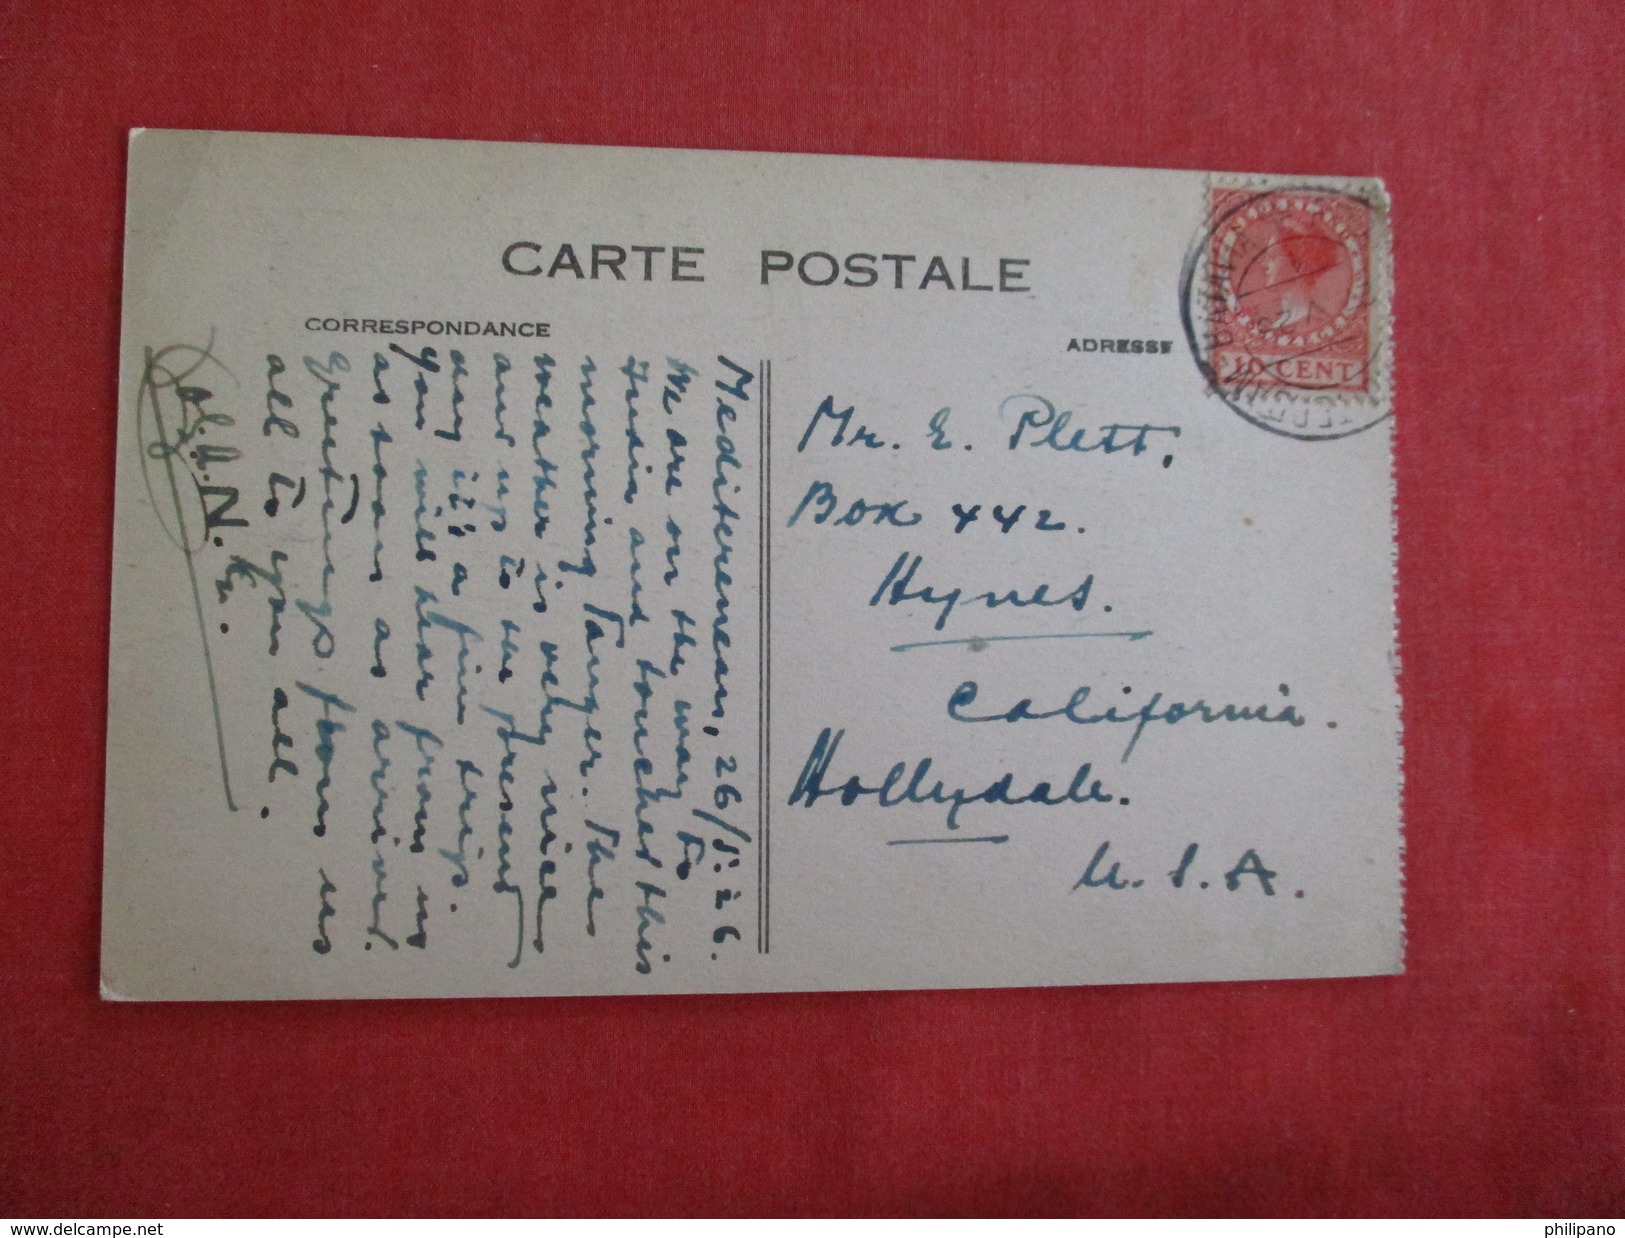 CARTE POSTALE
CORRESPONDANCE
ADRESSE
10 CENT
Mediterenean, 26/5. 26.
We are on the way to
India and touched this
morning Tanger. The
weather is very nice
and up to the present
day it's a fine trip.
You will hear from us
as soon as arrived.
Greetings from us
all to you all.
Mr. E. Plett,
Box 442.
Hynes.
California.
Hollydale.
U. S. A.
delcampe.net
philipano